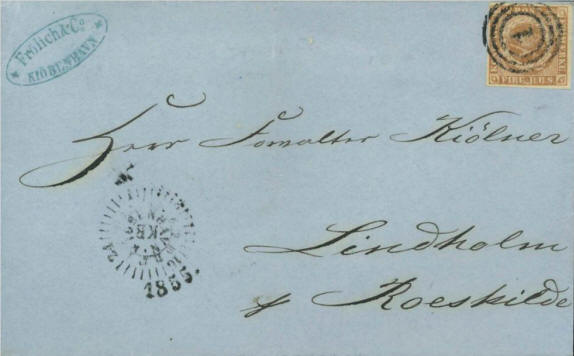 * Frölich & Co. *
KIÖBENHAVN
1
FIRE R.B.S.
Herr Forvalter Kiölner
Lindholm
pr Roeskilde
KB
1855.